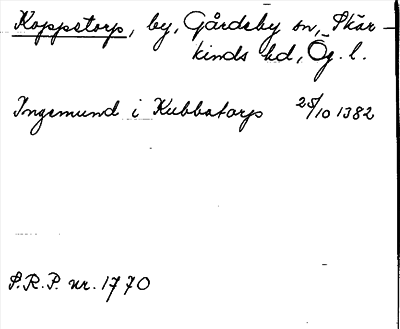 Koppetorp, by, Gårdeby sn, Skär-
kinds hd, Ög. l.
Ingemund i Kubbatorp 25/10 1382
S.R.P. nr. 1770